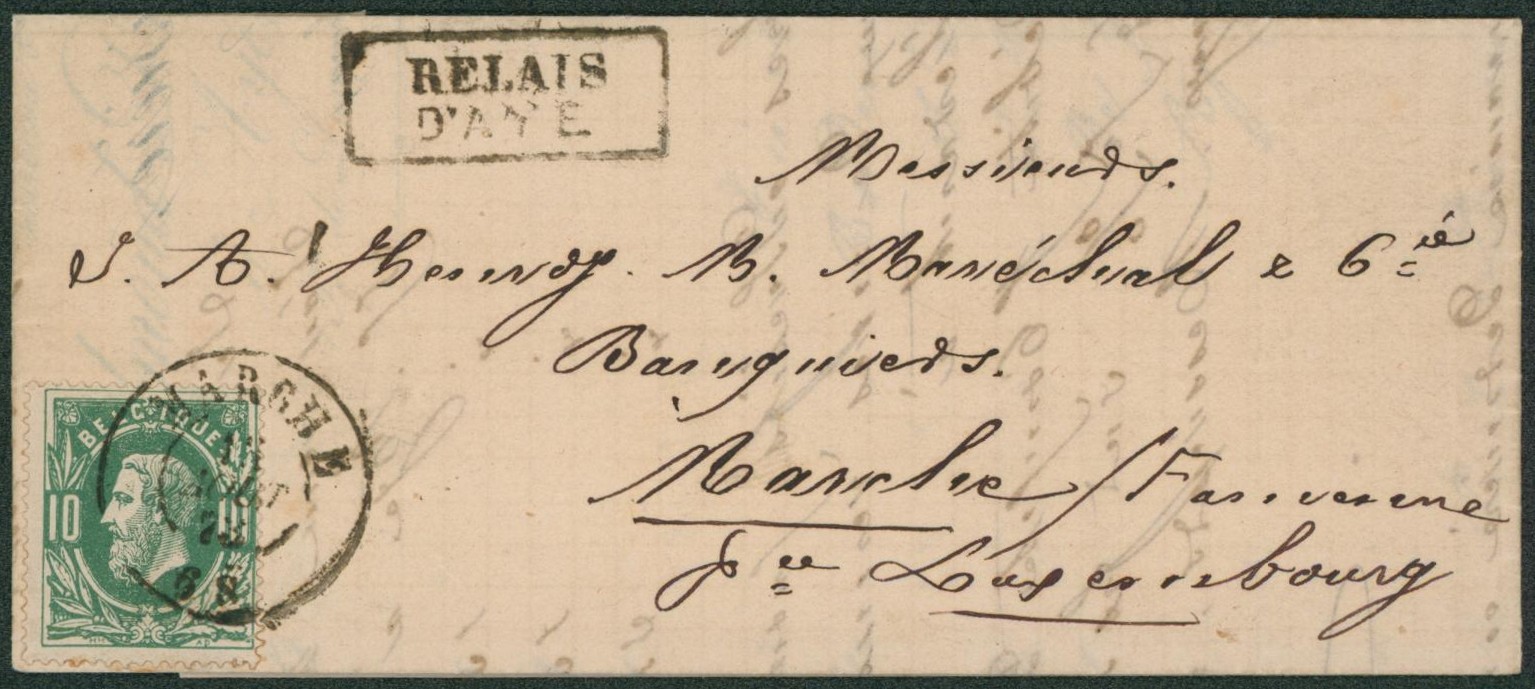 RELAIS
D'AYE
Messieurs.
J. A. Henry. M. Maréchal & Cie
Banquiers.
Marche / Famenne
pce Luxembourg
BELGIQUE
10 10
MARCHE
AOUT
6 S